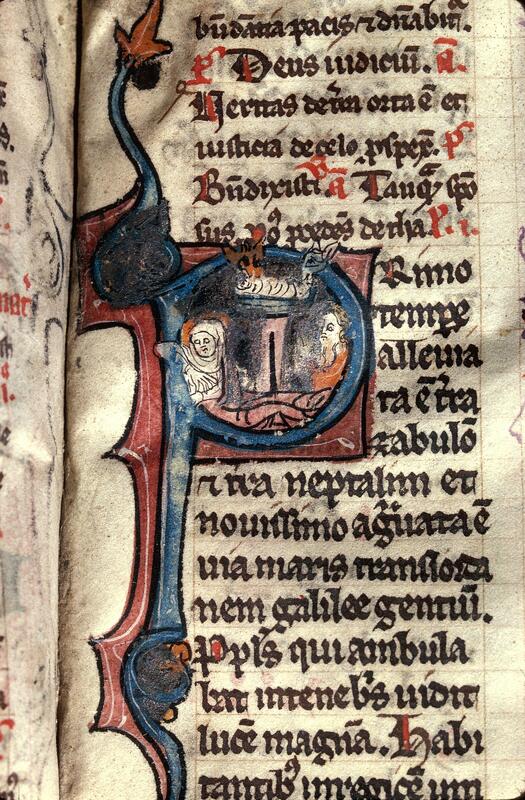 būdātia pacis ⁊ dn̄abit᷑.
p̄ Deus iudiciū. a᷑.
Veritas de t̄ra orta ē et
iusticia de celo ꝓspex̄. ℣
Bn̄dixisti a᷑ Tanq̄ȝ spō
sus dn̄s ꝓcedēs de tha
Rimo
tempꝛe
alleuia
ta ē t̄ra
zabulō
⁊ t̄ra neptalim et
nouissimo ag̃uata ē
uia maris transiorda
nem galilee gentiū.
Ppl̄s qui ambula
bat in teneb̄s uidit
lucē magnā. Habi
tantibꝰ in regiōe um